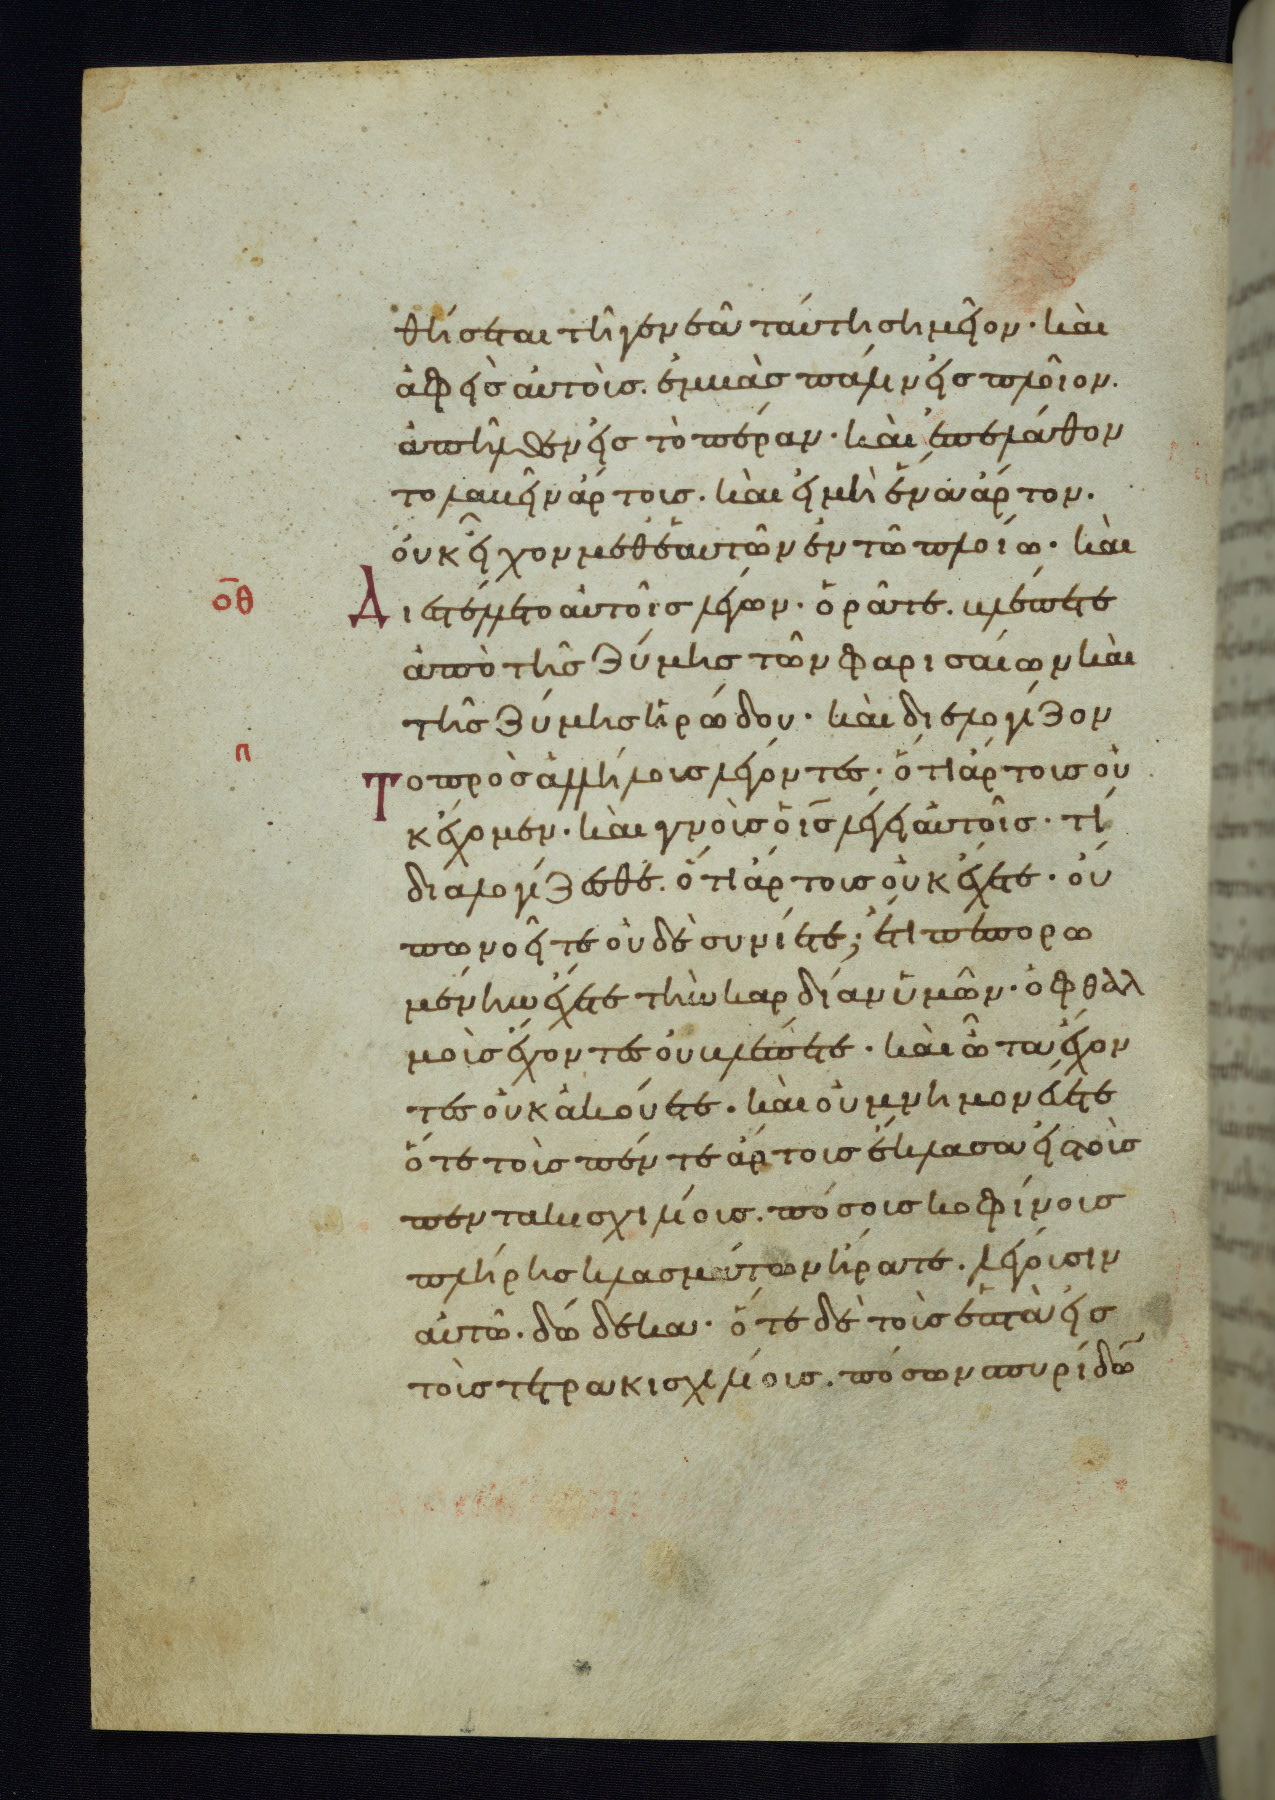 θήσεται τῆ γενεᾶ ταύτη σημεῖον· καὶ
ἀφεὶς αὐτοὺς. ἐμβὰς πάλιν εἰς πλοῖον.
ἀπῆλθεν εἰς τὸ πέραν· καὶ ἐπελάθον
το λαβεῖν ἄρτους. καὶ εἰ μὴ ἕνα ἄρτον.
οὐκ εἶχον μεθ' ἑαυτῶν ἐν τῶ πλοίω· καὶ
οθ Διεστέλλετο αὐτοῖς λέγων· ὁρᾶτε. βλέπετε
ἀπὸ τῆς ζύμης τῶν φαρισαίων καὶ
τῆς ζύμης ἡρώδου· καὶ διελογίζον
π Το πρὸς ἀλλήλους λέγοντες· ὅτι ἄρτους οὐ
κ ἔχομεν· καὶ γνοὺς ὁ ις λέγει αὐτοῖς· τί
διαλογίζεσθε. ὅτι ἄρτους οὐκ ἔχετε· οὔ
πω νοεῖτε οὐδὲ συνίετε; ἔτι πεπωρω
μένην ἔχετε τὴν καρδίαν ὑμῶν· ὀφθαλ
μοὺς ἔχοντες οὐ βλέπετε· καὶ ὦτα ἔχον
τες οὐκ ἀκούετε. καὶ οὐ μνημονεύετε
ὅτε τοὺς πέντε ἄρτους ἔκλασα εἰς τοὺς
πεντακισχιλίους. πόσους κοφίνους
πλήρης κλασμάτων ἤρατε. λέγουσιν
αὐτῶ. δώδεκα· ὅτε δὲ τοὺς ἑπτὰ εἰς
τοὺς τετρακισχιλίους. πόσων σπυρίδω